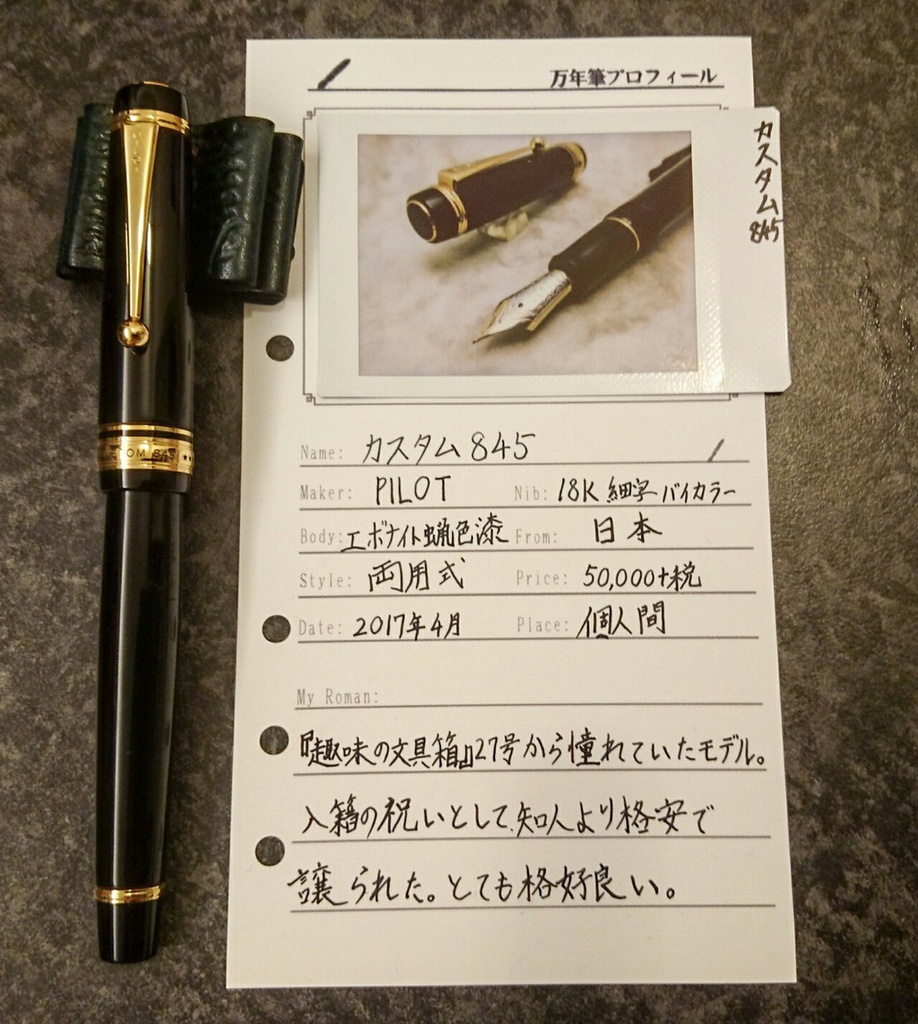 万年筆プロフィール
カスタム
845
Name: カスタム 845
Maker: PILOT Nib: 18K 細字 バイカラー
Body: エボナイト蝋色漆 From: 日本
Style: 両用式 Price: 50,000+税
Date: 2017年4月 Place: 個人間
My Roman:
『趣味の文具箱』27号から憧れていたモデル。
入籍の祝いとして、知人より格安で
譲られた。とても格好良い。
TOM 845 ★★